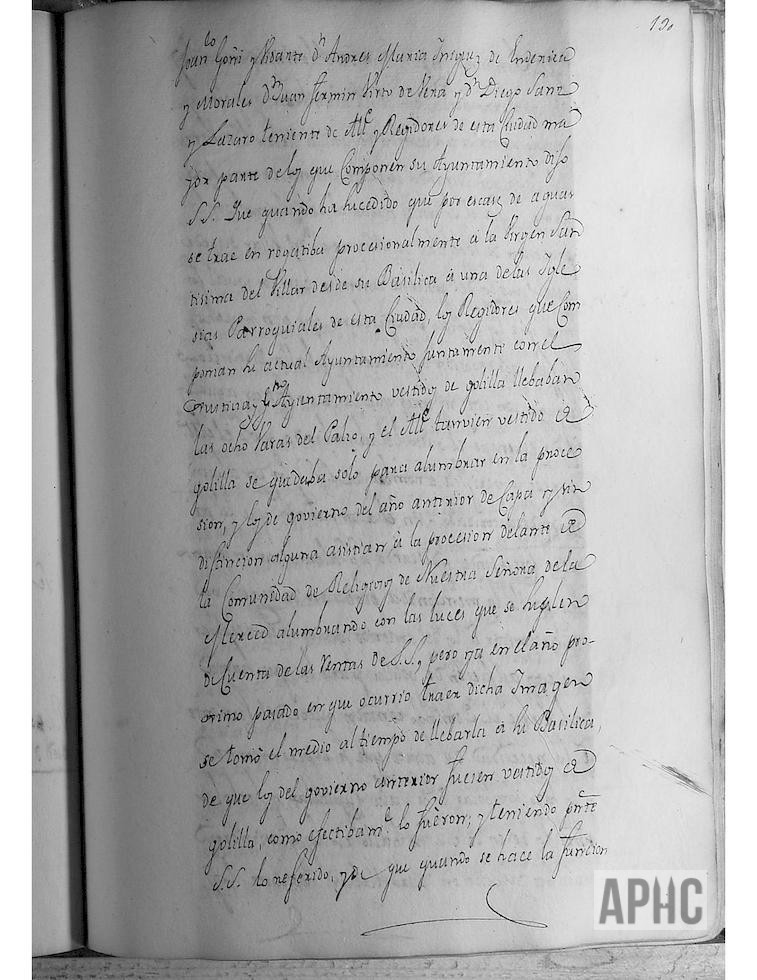 130
Juanlo Goñi y Vidarte Dn Andres Maria Iñiguez de Enderica
y Morales Dn Juan Fermin Virto de Vera y Dn Diego Sanz
y Lazaro teniente de Alle y Regidores de esta Ciudad ma
yor parte de los que Componen su Ayuntamiento dijo
S.S. Que quando ha sucedido que por escasez de aguas
se trae en rogatiba procesionalmente à la Virgen San
tisima del Villar desde su Basilica à una de las Igle
sias Parroquiales de esta Ciudad, los Regidores que Com
ponian el actual Ayuntamiento juntamente con el
Ayuntamiento vestidos de golilla llebaban
las ocho Varas del Palio, y el Alle tanvien vestido de
golilla se quedaba solo para alumbrar en la proce
sion, y los de govierno del año anterior de Capa y sin
distincion alguna asistian à la procesion delante de
la Comunidad de Religiosos de Nuestra Señora de la
Merced alumbrando con las luces que se suplen
de Cuenta de las Rentas de S.S., pero ya en el año pro-
ximo pasado en que ocurrio traer dicha Imagen
se tomò el medio al tiempo de llebarla à su Basilica,
de que los del govierno anterior fuesen vestidos de
golilla, como efectibamte lo fueron; y teniendo pnte
S.S. lo referido, y de que quando se hace la funcion
APHC